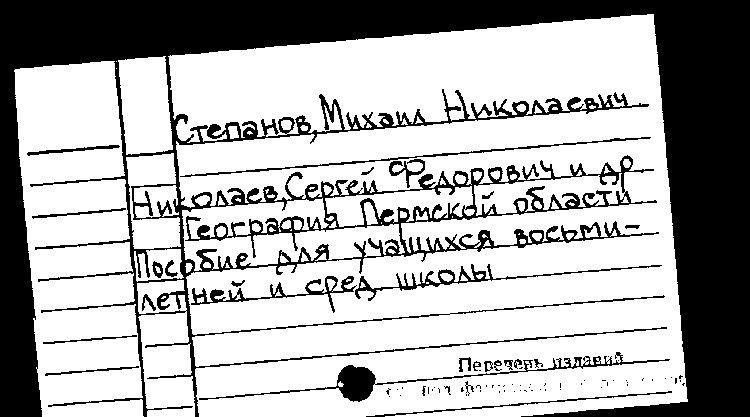 Степанов, Михаил Николаевич
Николаев, Сергей Федорович и др
География Пермской области
Пособие для учащихся восьми-
летней и сред школы
Перечень изданий
см. под